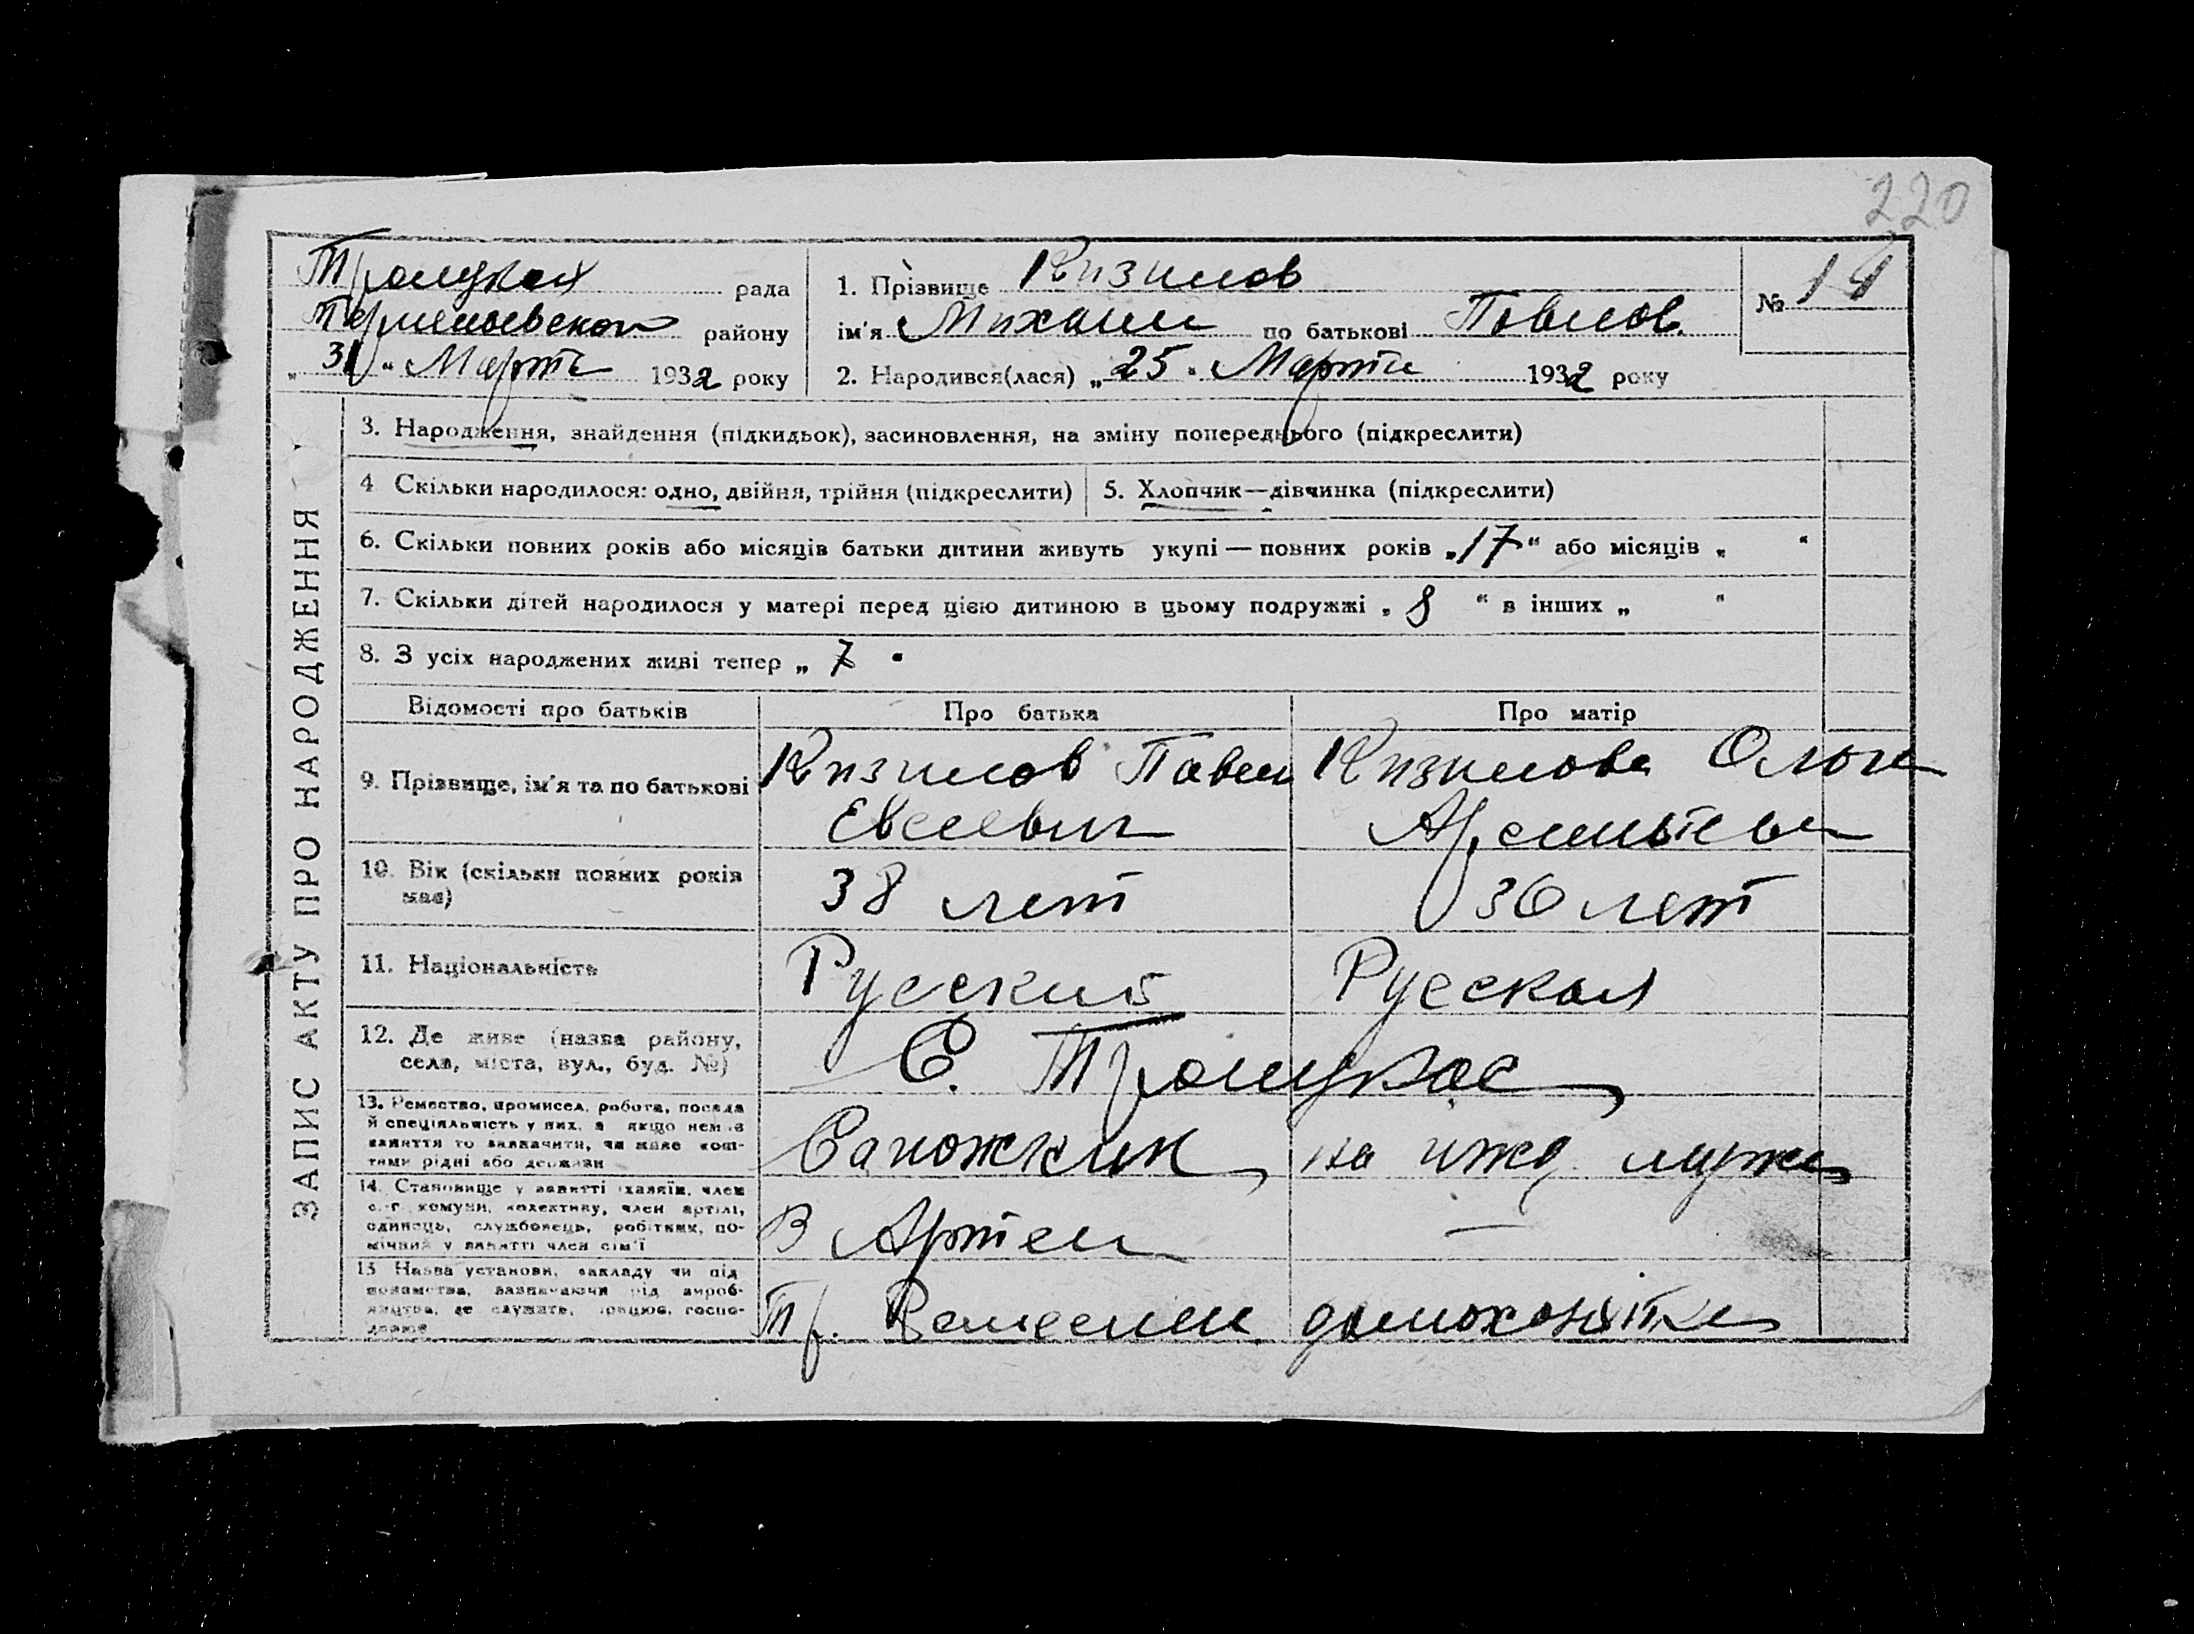 220
Троицкая рада
района
„31“ Марта 1932 року
1. Прізвище Кизилов
ім'я Михаил по батькові Павлов.
№ 14
2. Народився(лася) „25“ Марта 1932 року
ЗАПИС АКТУ ПРО НАРОДЖЕННЯ
3. Народження, знайдення (підкидьок), засиновлення, на зміну попереднього (підкреслити)
4 Скільки народилося: одно, двійня, трійня (підкреслити)
5. Хлопчик—дівчинка (підкреслити)
6. Скільки повних років або місяців батьки дитини живуть укупі — повних років „17“ або місяців „ “
7. Скільки дітей народилося у матері перед цією дитиною в цьому подружжі „ 8 “ в інших „ “
8. З усіх народжених живі тепер „ 7 “
Відомості про батьків
Про батька
Про матір
9. Прізвище, ім'я та по батькові
Кизилов Павел
Евсеевич
Кизилова Ольга
Арсентьева
10. Вік (скільки повних років має)
38 лет
36 лет
11. Національність
Русский
Русская
12. Де живе (назва району,
села, міста, вул., буд. №)
С. Троицкое
13. Ремество, промисел, робота, посада
й спеціяльність у них, а якщо немає
заняття то зазначити, чи живе кош-
тами рідні або держави
Сапожник
на ижд. мужа
14. Становище у занятті (хазяїн, член
с.-г. комуни, колективу, член артілі,
одинець, службовець, робітник, по-
мічний у занятті член сім'ї
В Артели
—
15 Назва установи, закладу чи під
Тр.
домохозяйка